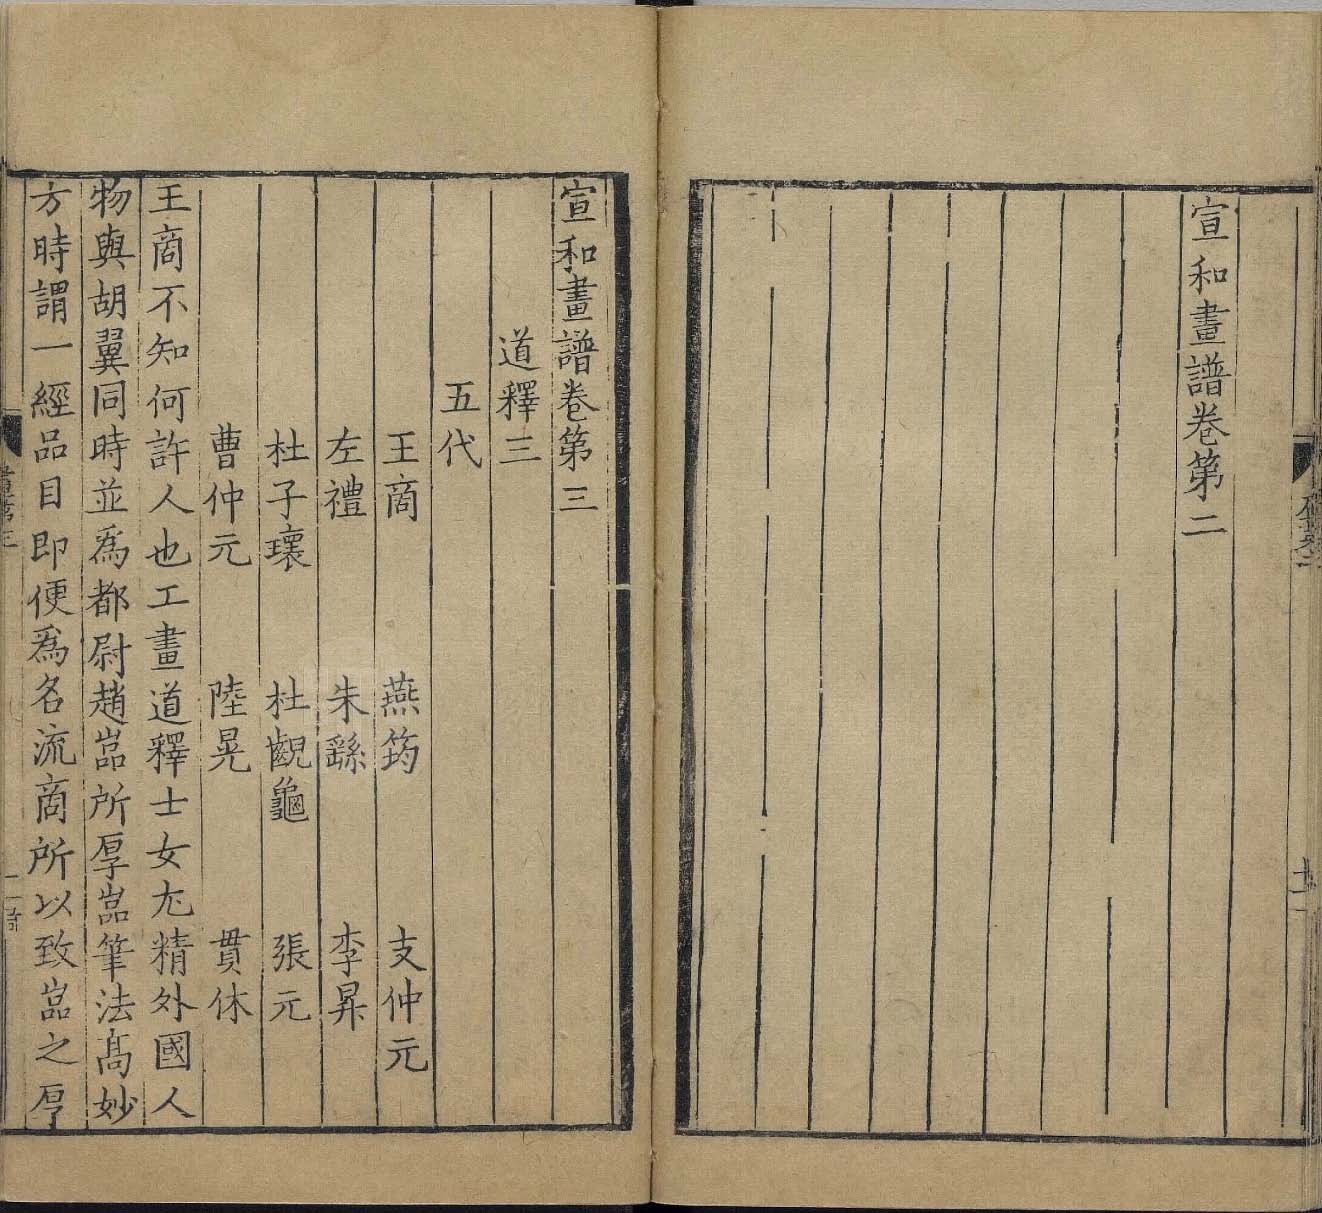 宣和畫譜卷第二
宣和畫譜卷第三
道釋三
五代
王商 燕筠 支仲元
左禮 朱繇 李昇
杜子瓌 杜齯龜 張元
曹仲元 陸晃 貫休
王商不知何許人也工畫道釋士女尤精外國人
物與胡翼同時並爲都尉趙嵓所厚嵓筆法高妙
方時謂一經品目即便爲名流商所以致嵓之厚